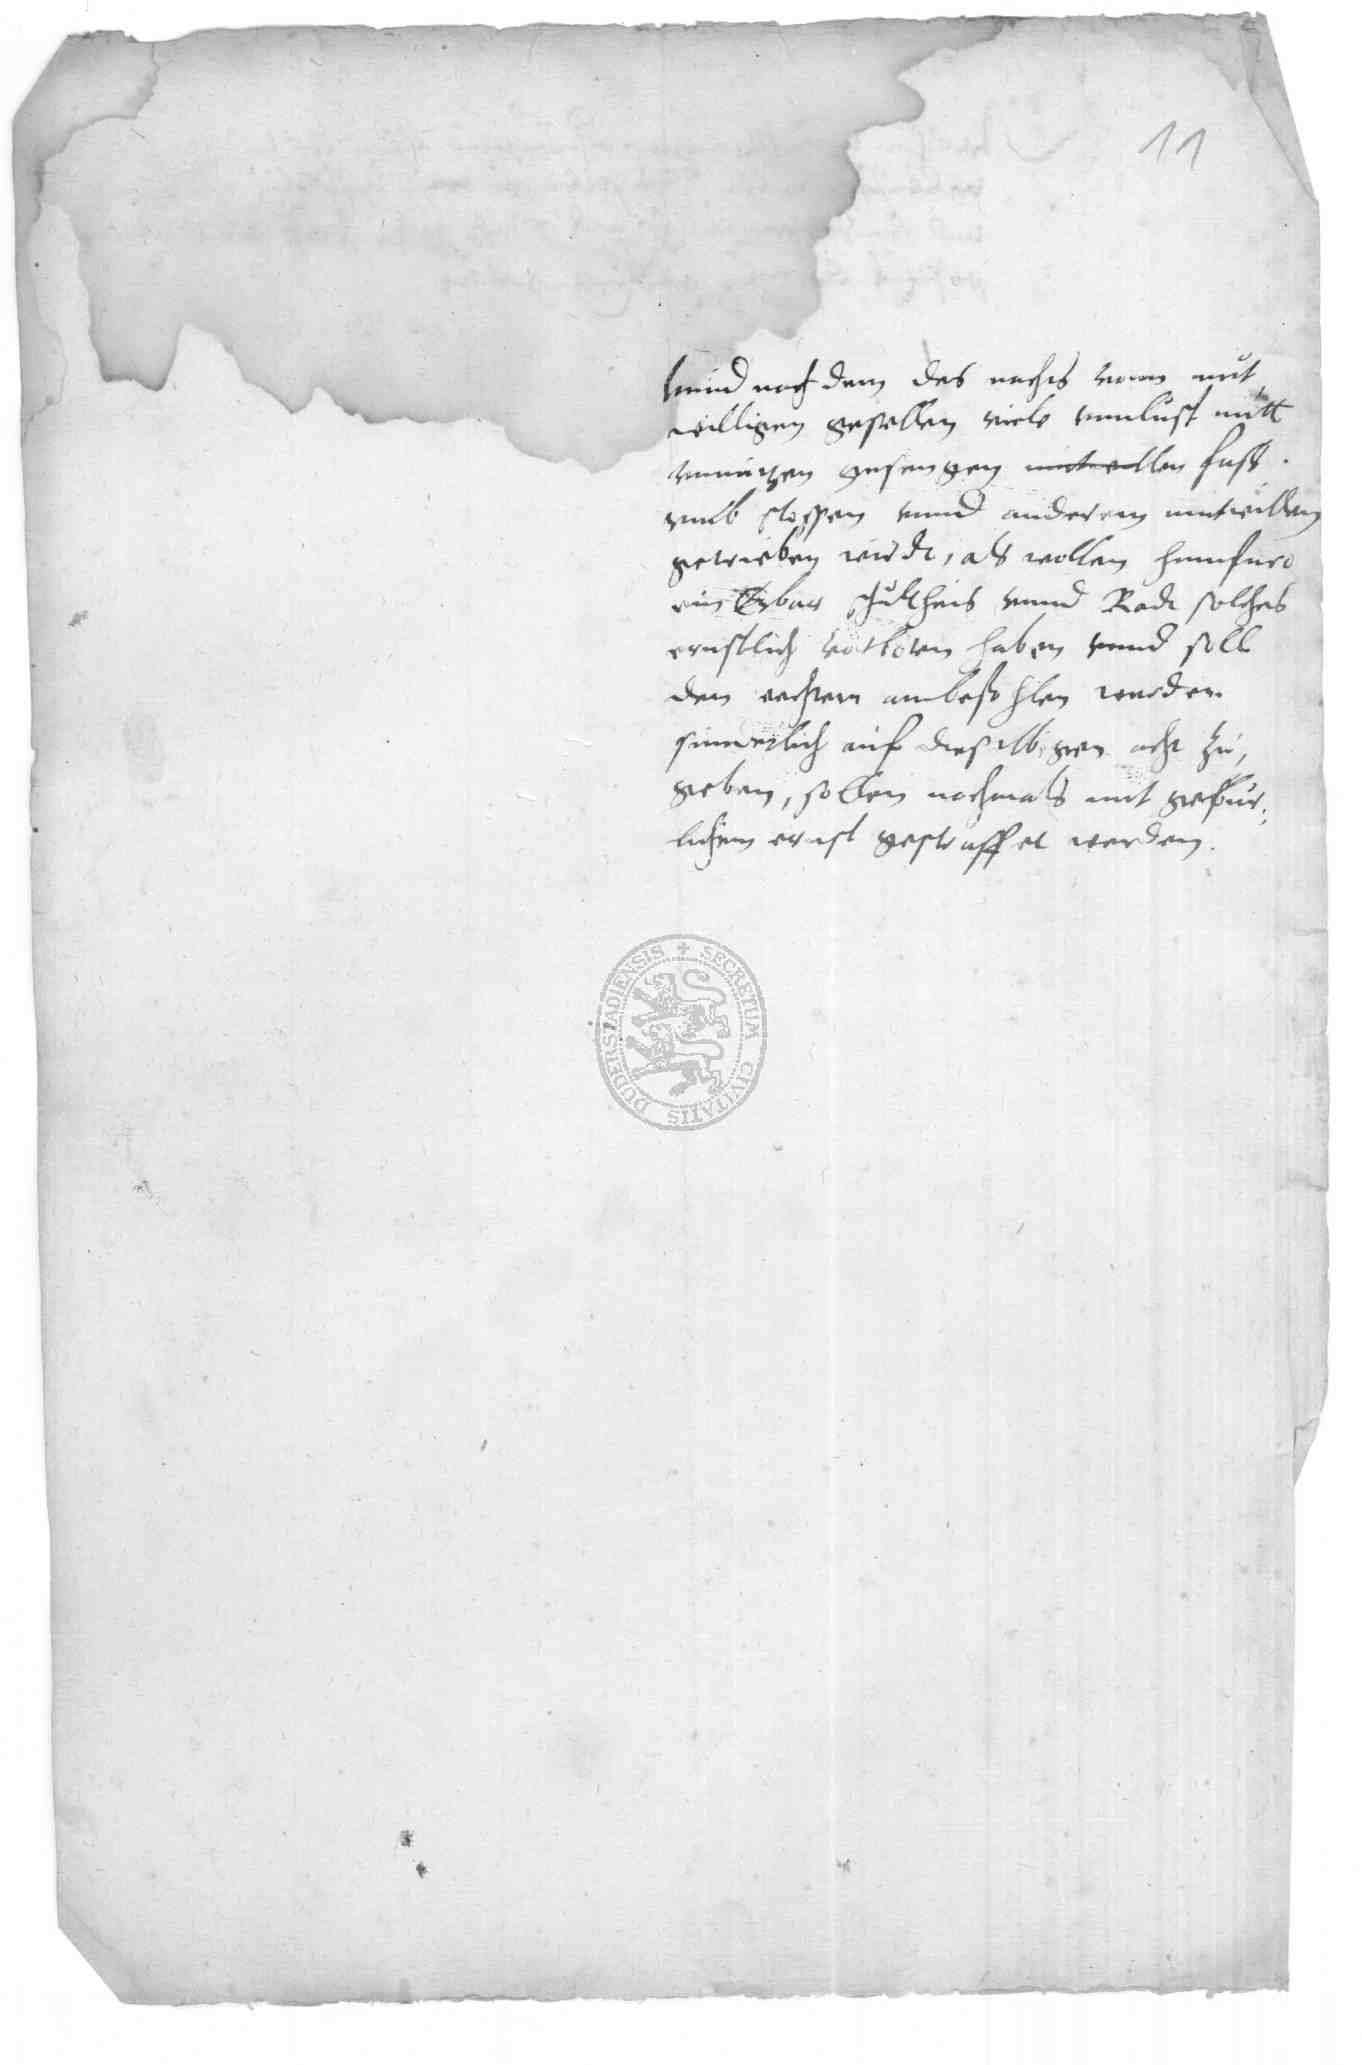 11
Vnnd nach dem des nachts vonn mut
willigen gesellen viele vnnlust mitt
vnnutzen gesengen mutwillen fast
vmb stossen vnnd anderem mutwillen
getrieben wirdt, als wollen hinnfuro
ein Erbar schultheis vnnd Radt solches
ernstlich vorboten haben vnnd soll
den wechtern ambefohlen werden
auf dieselbigen acht zu,
geben, sollen nochmals mit gepur,
lichem ernst gestraffet werden.
SECRETUM CIVITATIS DUDERSTADIENSIS